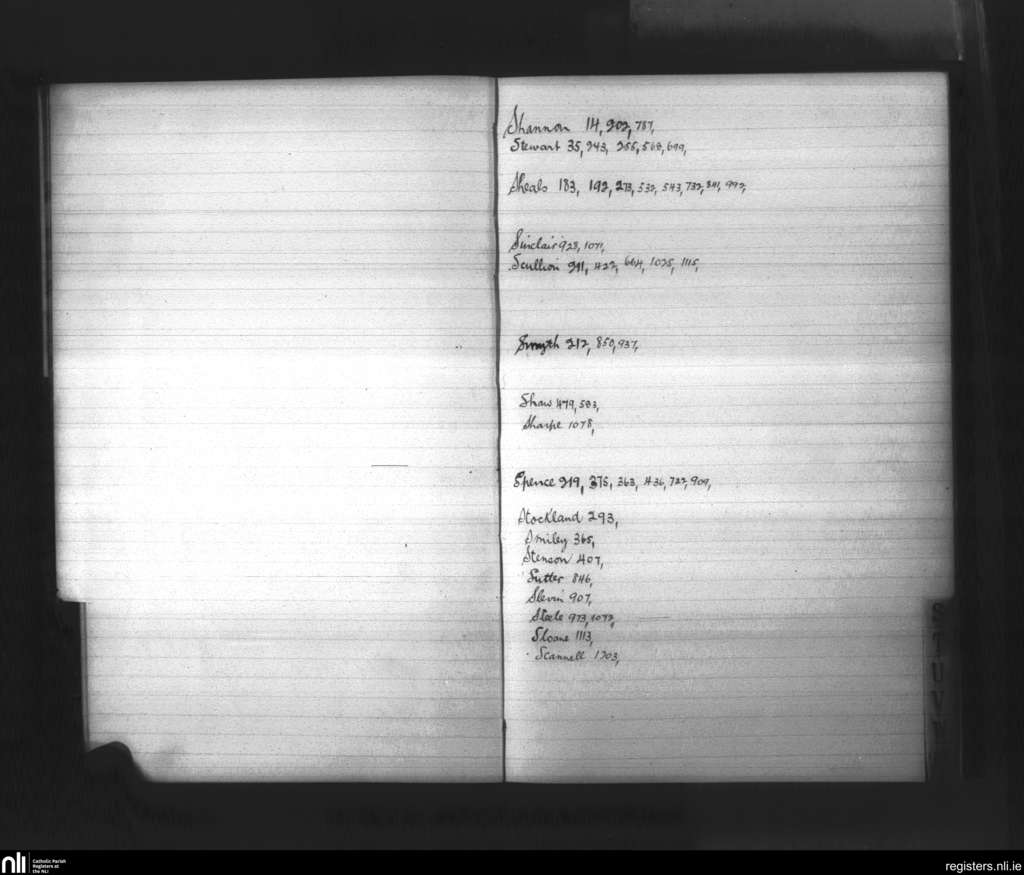 Shannon 114, 202, 787,
Stewart 35, 243, 255, 568, 699,
Sheals 183, 192, 273, 532, 543, 732, 841, 992,
Sinclair 928, 1071,
Scullion 211, 422, 664, 1025, 1115,
Smyth 212, 850, 937,
Shaw 479, 583,
Sharpe 1078,
Spence 219, 375, 363, 436, 722, 909,
Stockland 293,
Smiley 365,
Stenson 407,
Sutter 846,
Slevin 907,
Steele 973, 1072,
Sloane 1113,
Scannell 1203,
S T U V
nli Catholic Parish
Registers at
the NLI
registers.nli.ie